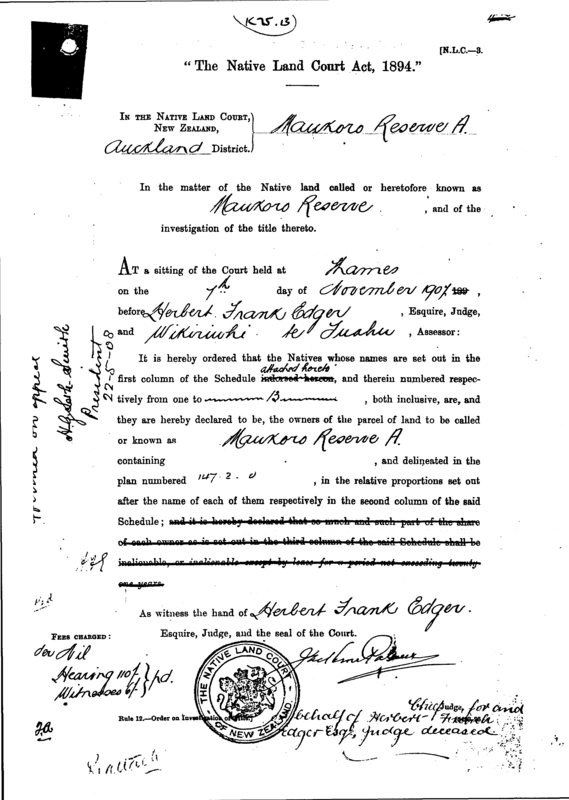 K25.B
[N.L.C.—3.
"The Native Land Court Act, 1894."
IN THE NATIVE LAND COURT,
NEW ZEALAND,
Auckland DISTRICT.
Maukoro Reserve A.
In the matter of the Native land called or heretofore known as
Maukoro Reserve , and of the
investigation of the title thereto.
AT a sitting of the Court held at Thames
on the 7th day of November 1907 189 ,
before Herbert Frank Edger , Esquire, Judge,
and Wikiriwhi te Tuahu , Assessor:
It is hereby ordered that the Natives whose names are set out in the
attached hereto
first column of the Schedule indorsed hereon, and therein numbered respec-
tively from one to 13 , both inclusive, are, and
they are hereby declared to be, the owners of the parcel of land to be called
or known as Maukoro Reserve A.
containing , and delineated in the
plan numbered 147.2.0 , in the relative proportions set out
after the name of each of them respectively in the second column of the said
Schedule; and it is hereby declared that so much and such part of the share
of each owner as is set out in the third column of the said Schedule shall be
inalienable, or inalienable except by lease for a period not exceeding twenty-
one years.
on appeal
President
22-5-08
As witness the hand of Herbert Frank Edger.
Esquire, Judge, and the seal of the Court.
FEES CHARGED:
Nil
Hearing
Witnesses
pd.
THE NATIVE LAND COURT
OF NEW ZEALAND
Chief Judge, for and
Rule 12.—Order on Investigation of Title.
behalf of Herbert Frank
Edger Esq, Judge deceased